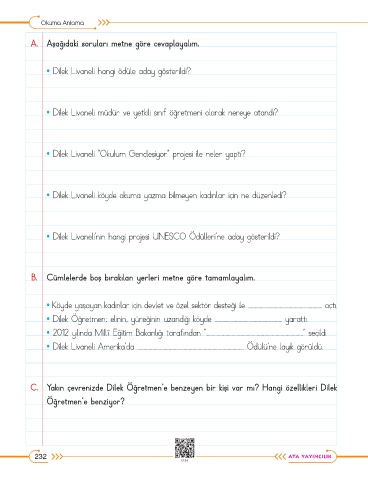 Okuma Anlama
A. Aşağıdaki soruları metne göre cevaplayalım.
• Dilek Livaneli hangi ödüle aday gösterildi?
• Dilek Livaneli müdür ve yetkili sınıf öğretmeni olarak nereye atandı?
• Dilek Livaneli "Okulum Gençleşiyor" projesi ile neler yaptı?
• Dilek Livaneli köyde okuma yazma bilmeyen kadınlar için ne düzenledi?
• Dilek Livaneli'nin hangi projesi UNESCO Ödülleri'ne aday gösterildi?
B. Cümlelerde boş bırakılan yerleri metne göre tamamlayalım.
• Köyde yaşayan kadınlar için devlet ve özel sektör desteği ile ........................ açtı.
• Dilek Öğretmen; elinin, yüreğinin uzandığı köyde ........................ yarattı.
• 2012 yılında Millî Eğitim Bakanlığı tarafından "........................" seçildi.
• Dilek Livaneli Amerika'da ........................ Ödülü'ne layık görüldü.
C. Yakın çevrenizde Dilek Öğretmen'e benzeyen bir kişi var mı? Hangi özellikleri Dilek
Öğretmen'e benziyor?
232
ATA YAYINCILIK